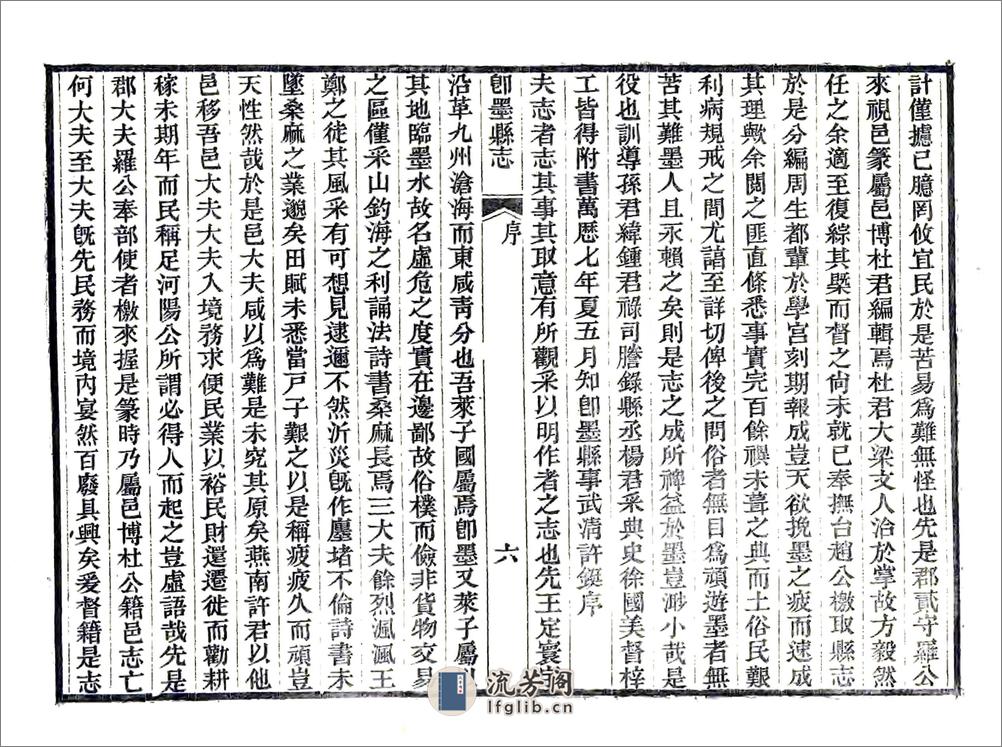 計僅據已臆罔攸宜民於是苦易爲難無怪也先是郡貳守羅公
來視邑篆屬邑博杜君編輯焉杜君大梁文人洽於掌故方毅然
任之余適至復綜其槩而督之尙未就已奉撫台趙公檄取縣志
於是分編周生都輩於學宮刻期報成豈天欲挽墨之疲而速成
其理歟余閱之匪直條悉事實完百餘禩未葺之典而土俗民艱
利病規戒之間尤諳至詳切俾後之問俗者無目爲頑遊墨者無
苦其難墨人且永賴之矣則是志之成所裨益於墨豈渺小哉是
役也訓導孫君緯鍾君祿司謄錄縣丞楊君采典史徐國美督梓
工皆得附書萬歷七年夏五月知卽墨縣事武清許鋌序
夫志者志其事其取意有所觀采以明作者之志也先王定寰
卽墨縣志 序 六
沿革九州滄海而東咸靑分也吾萊子國屬焉卽墨又萊子屬
其地臨墨水故名虛危之度實在邊鄙故俗樸而儉非貨物交易
之區僅采山釣海之利誦法詩書桑麻長焉三大夫餘烈渢渢王
鄭之徒其風采有可想見逮邇不然沂災旣作鏖堵不倫詩書未
墜桑麻之業邈矣田賦未悉當戸子艱之以是稱疲疲久而頑豈
天性然哉於是邑大夫咸以爲難是未究其原矣燕南許君以他
邑移吾邑大夫大夫入境務求便民業以裕民財還遷徙而勸耕
稼未期年而民稱足河陽公所謂必得人而起之豈虛語哉先是
郡大夫羅公奉部使者檄來握是篆時乃屬邑博杜公籍邑志亡
何大夫至大夫旣先民務而境内宴然百廢具興矣爰督籍是志
流芳阁
lfglib.cn